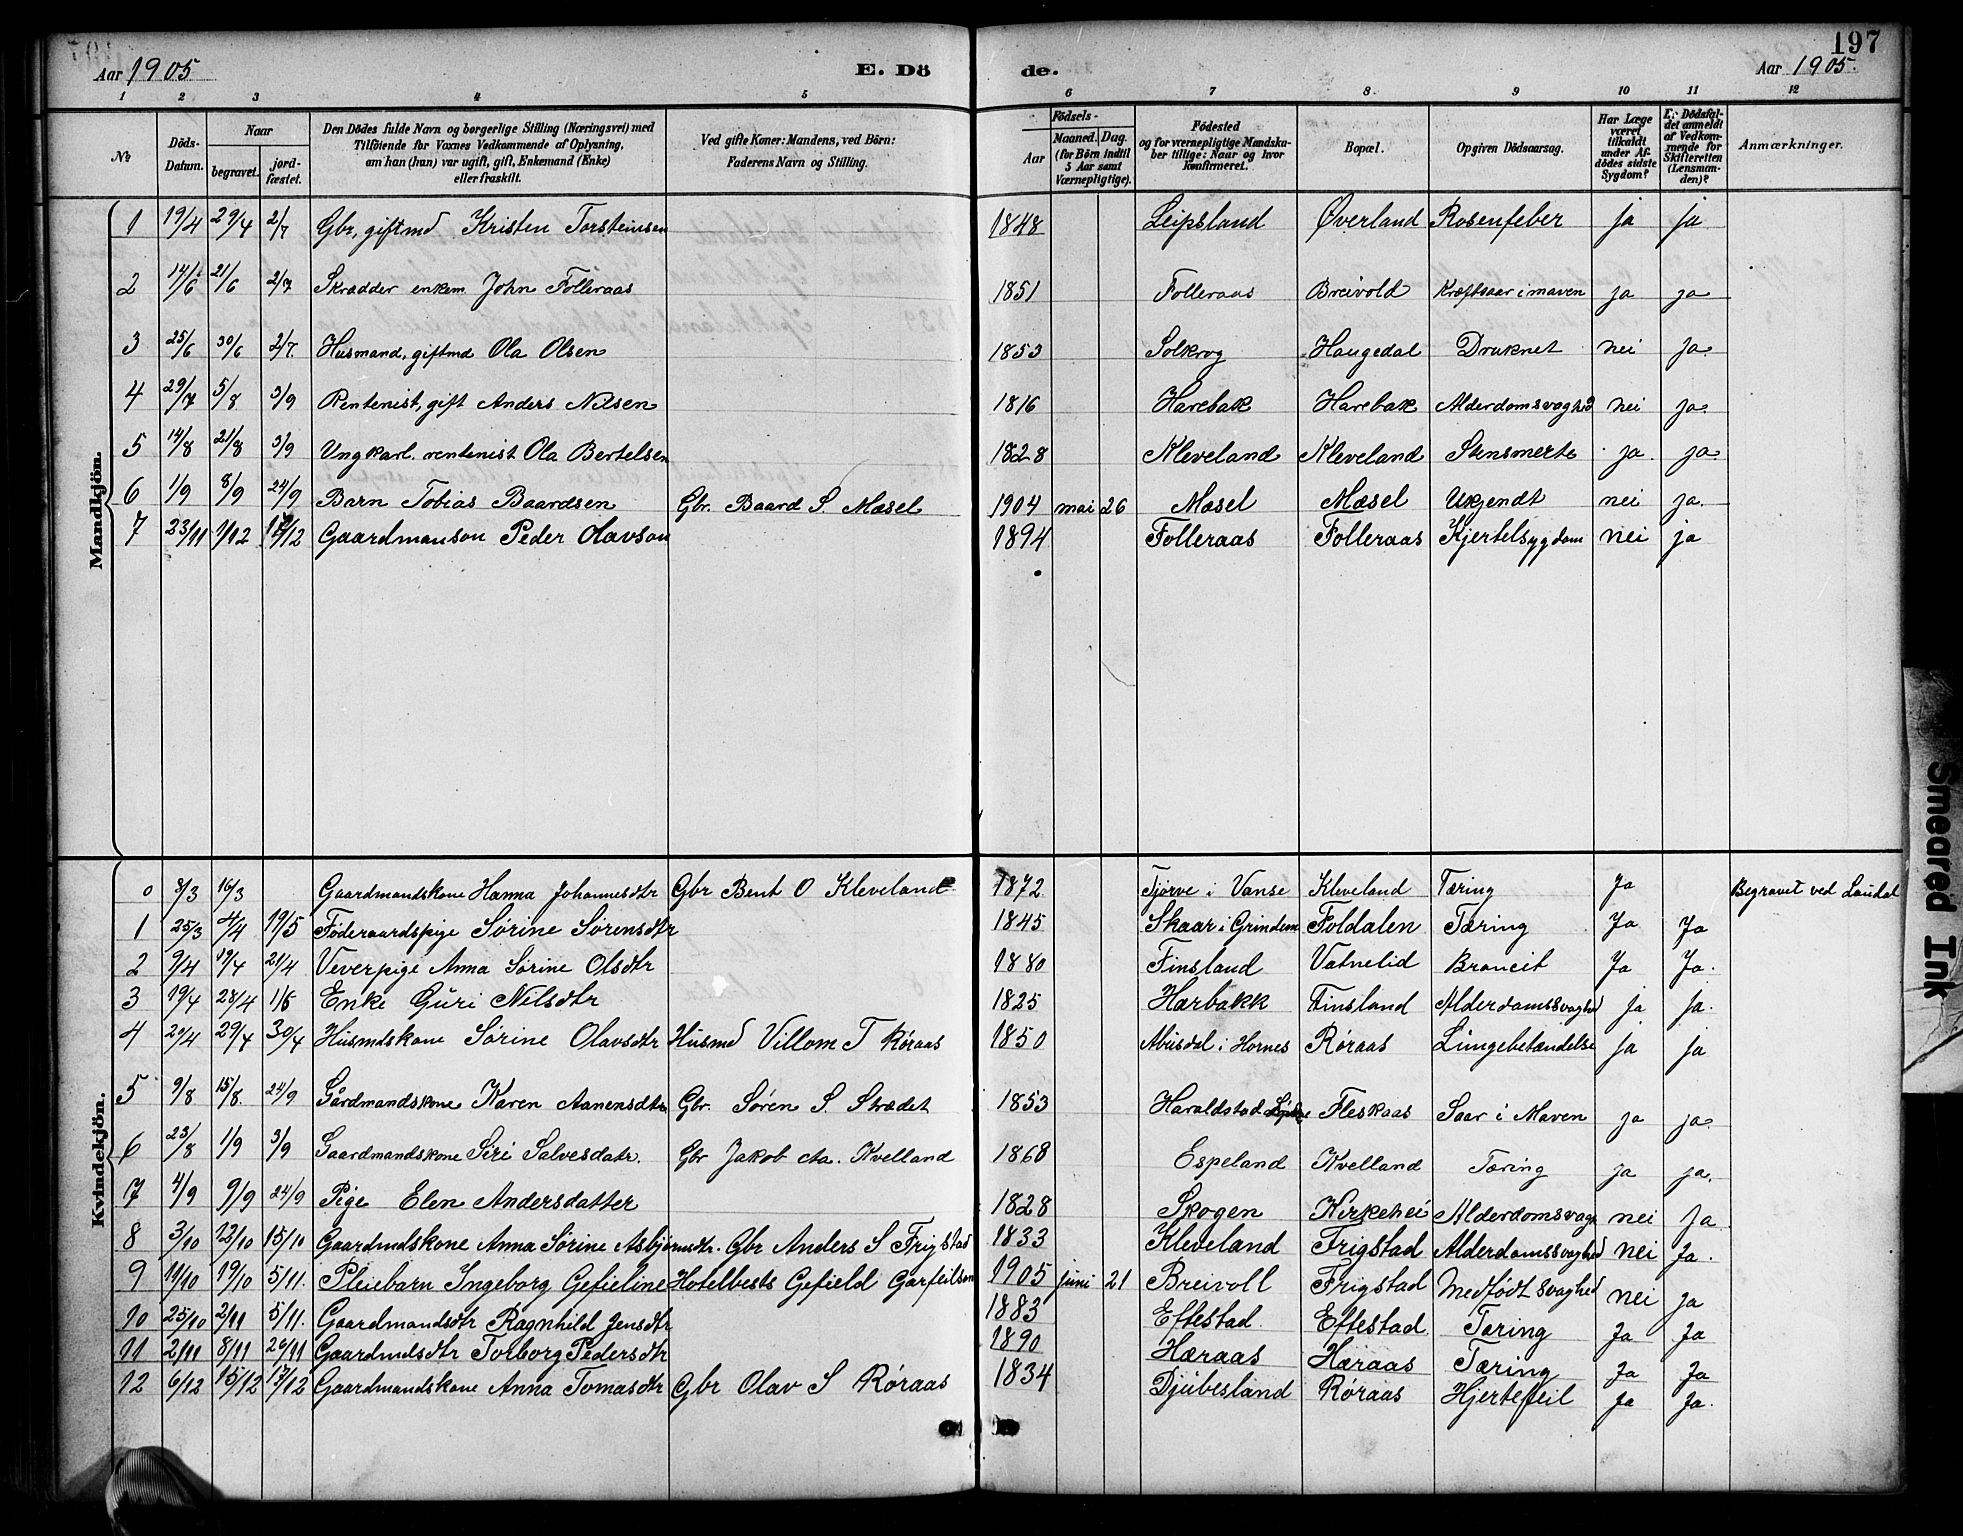 197
Aar 1905. E. Dö de. Aar 1905.
1 2 3 4 5 6 7 8 9 10 11 12
No Döds-Datum. Naar begravet. jord-fæstet. Den Dödes fulde Navn og borgerlige Stilling (Næringsvei) med Tilföiende for Voxnes Vedkommende af Oplysning, om han (hun) var ugift, gift, Enkemand (Enke) eller fraskilt. Ved gifte Koner: Mandens, ved Börn: Faderens Navn og Stilling. Födsels- Aar Maaned. Dag. (for Börn indtil 5 Aar samt Værnepligtige). Födested og for værnepligtige Mandskaber tillige: Naar og hvor konfirmeret. Bopæl. Opgiven Dödsaarsag. Har Læge været tilkaldt under Afdödes sidste Sygdom? Er Dödsfaldet anmeldt af Vedkommende for Skifteretten (Lensmanden)? Anmærkninger.
Mandkjön.
1 19/4 29/4 2/7 Gbr, giftmd Kristen Torsteinsen 1848 Leipsland Øverland Rosenfeber ja ja
2 14/6 21/6 2/7 Skrædder enkem John Folleraas 1851 Folleraas Breivold Kræftsaar i maven ja ja
3 25/6 30/6 2/7. Husmand, giftmd Ola Olsen 1853 Solkrog Haugedal Druknet nei Ja.
4 29/7 5/8 3/9 Rentenist, gift Anders Nilsen 1816 Harebak Harebak Alderdomsvaghed nei ja.
5 14/8 21/8 3/9 Ungkarl. rentenist Ola Bertelsen 1828 Kleveland Kleveland Stensmerte ja ja.
6 1/9 8/9 24/9 Barn Tobias Baardsen Gbr. Baard S. Mæsel 1904 mai 26 Mæsel Mæsel Ukjendt nei ja.
7 23/11 1/12 17/12 Gaardmanson Peder Olavson 1894 Folleraas Folleraas Kjertelsygdom nei ja
Kvindekjön.
0 8/3 16/3 Gaardmandskone Hanna Johannesdtr Gbr Bent O Kleveland 1872 Tjørve i Vanse Kleveland Tæring Ja Begravet ved Laudal
1 25/3 4/4 19/5 Föderaardspige Sørine Sørensdtr 1845 Skaar i Grindem Foldalen Tæring Ja Ja
2 9/4 19/4 21/4 Veverpige Anna Sørine Olsdtr 1880 Finsland Vatnelid Broncit Ja Ja.
3 19/4 28/4 1/6 Enke Guri Nilsdtr 1825 Hærbakk Finsland Alderdomssvaghed ja ja.
4 20/4 29/4 30/4 Husmdskone Sørine Olavsdtr Husmd Villom T Røraas 1850 Abusdal i Hornes Røraas Lungebetændelse ja ja
5 9/8 15/8. 24/9 Gårdmandskone Karen Aanensdtr Gbr. Søren S. Strædet 1853 Haraldstad Fleskaas Saar i Maven ja ja.
6 23/8 1/9 3/9 Gaardmandskone Siri Salvesdatr. Gbr Jakob Aa. Kvelland 1868 Espeland Kvelland Tæring ja ja.
7 4/9 9/9 24/9 Pige Elen Andersdatter 1828 Skogen Kirkehei Alderdomsvagh nei Ja
8 3/10 12/10 15/10 Gaardmdskone Anna Sørine Asbjørnsdtr. Gbr Anders S Frigstad 1833 Kleveland Frigstad Alderdomssvaghed nei Ja.
9 11/10 19/10 5/11. Pleiebarn Ingeborg Gefieline Hotelbests Gefield Garfeilsen 1905 juni 21 Breivoll Frigstad Medfødt svaghed nei Ja
10 25/10 2/11 5/11. Gaardmandsdtr Ragnhild Jensdtr 1883 Eftestad Eftestad Tæring Ja Ja
11 2/11 8/11 26/11 Gaardmdsdtr Torborg Pedersdtr 1890 Hæraas Hæraas Tæring Ja Ja
12 6/12 15/12 17/12 Gaardmandskone Anna Tomasdtr Gbr Olav S Røraas 1834 Djubesland Røraas Hjertefeil Ja Ja.
Smeared Ink